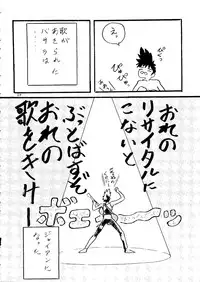 歌が
あきられた
バサラは
えっ
ぴゅ〜
ぴゅ〜
おれの
リサイタルに
こないと
ぶっとばすぞ
おれの
歌をきけー
ボエ〜〜ッ
ジャイアンに
なった